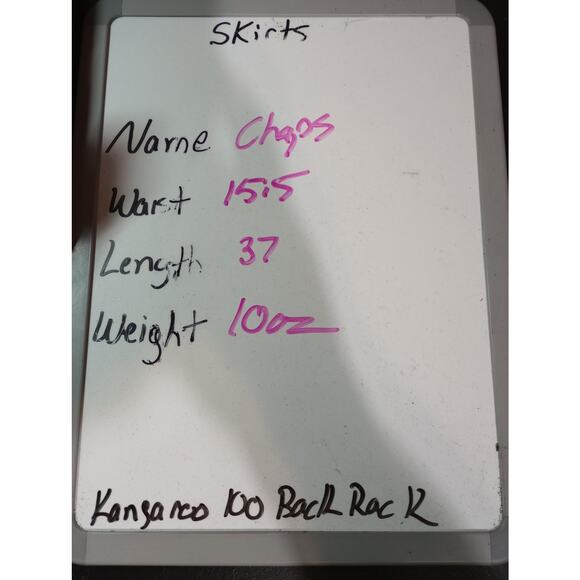 Skirts
Name Chaps
Waist 15.5
Length 37
Weight 10oz
Kangaroo 100 Back Rack